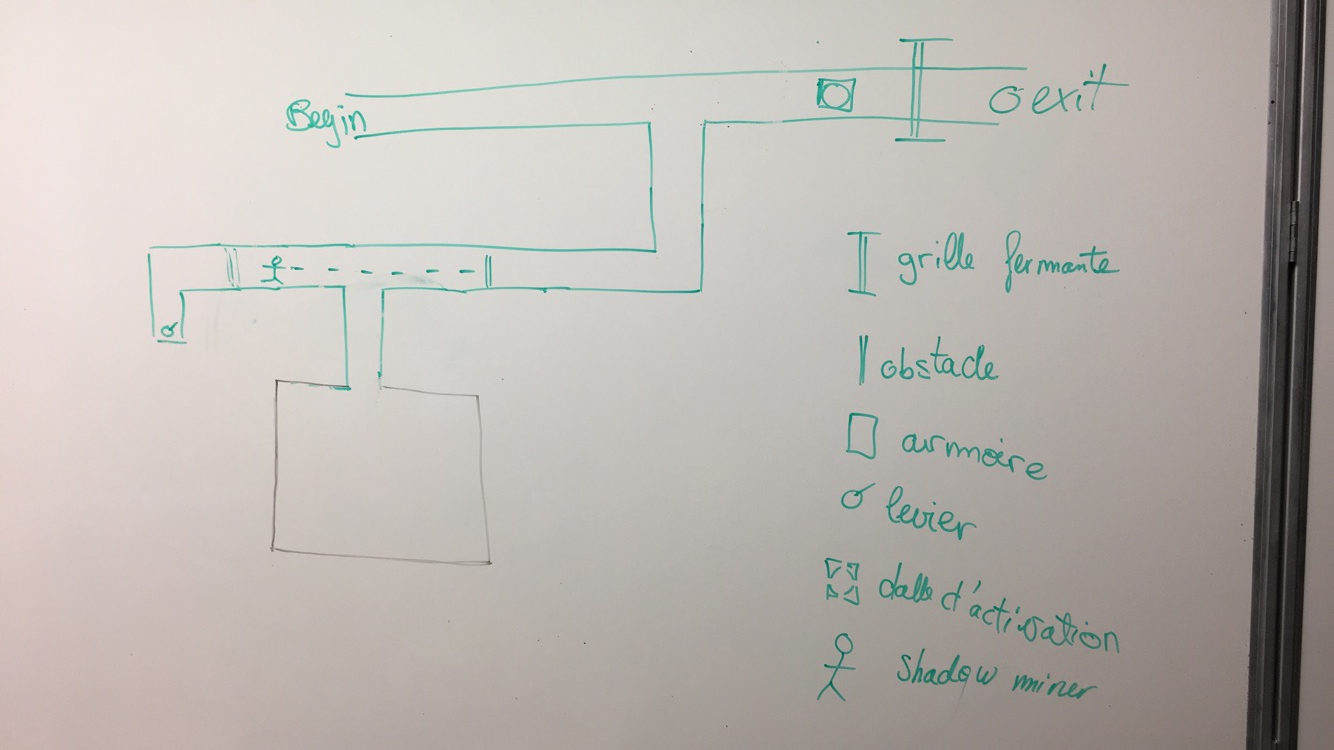 Begin
exit
grille fermante
obstacle
armoire
levier
dalle d'activation
Shadow miner